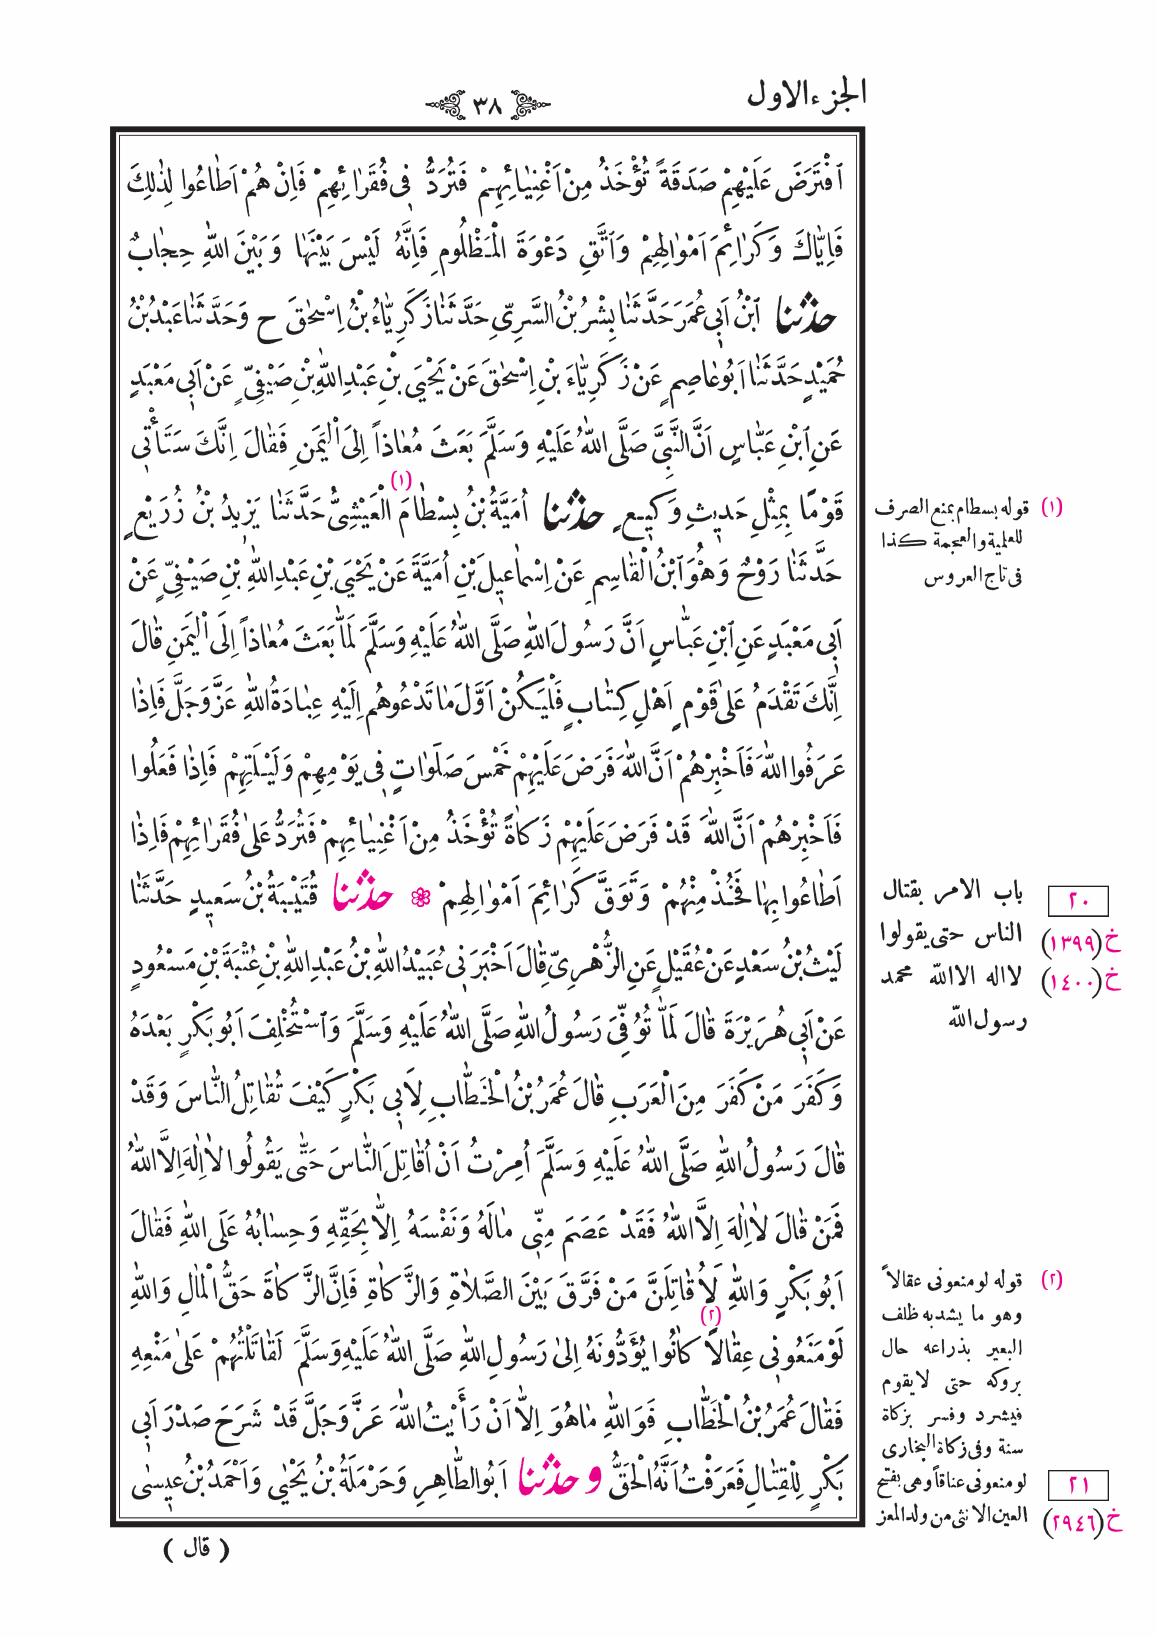 الجزء الاول
٣٨
اَفْتَرَضَ عَلَيْهِمْ صَدَقَةً تُؤْخَذُ مِنْ اَغْنِيَائِهِمْ فَتُرَدُّ فِى فُقَرَائِهِمْ فَاِنْ هُمْ اَطَاعُوا لِذٰلِكَ
فَاِيَّاكَ وَكَرَائِمَ اَمْوَالِهِمْ وَاتَّقِ دَعْوَةَ الْمَظْلُومِ فَاِنَّهُ لَيْسَ بَيْنَهَا وَبَيْنَ اللهِ حِجَابٌ
حدثنا ابْنُ اَبِى عُمَرَ حَدَّثَنَا بِشْرُ بْنُ السَّرِىِّ حَدَّثَنَا زَكَرِيَّاءُ بْنُ اِسْحٰقَ ح وَحَدَّثَنَا عَبْدُ بْنُ
حُمَيْدٍ حَدَّثَنَا اَبُو عَاصِمٍ عَنْ زَكَرِيَّاءَ بْنِ اِسْحٰقَ عَنْ يَحْيَى بْنِ عَبْدِ اللهِ بْنِ صَيْفِىٍّ عَنْ اَبِى مَعْبَدٍ
عَنِ ابْنِ عَبَّاسٍ اَنَّ النَّبِىَّ صَلَّى اللهُ عَلَيْهِ وَسَلَّمَ بَعَثَ مُعَاذاً اِلَى الْيَمَنِ فَقَالَ اِنَّكَ سَتَأْتِى
قَوْمًا بِمِثْلِ حَدِيثِ وَكِيعٍ حدثنا اُمَيَّةُ بْنُ بِسْطَامَ (١) الْعَيْشِىُّ حَدَّثَنَا يَزِيدُ بْنُ زُرَيْعٍ
حَدَّثَنَا رَوْحٌ وَهُوَ ابْنُ الْقَاسِمِ عَنْ اِسْمَاعِيلَ بْنِ اُمَيَّةَ عَنْ يَحْيَى بْنِ عَبْدِ اللهِ بْنِ صَيْفِىٍّ عَنْ
اَبِى مَعْبَدٍ عَنِ ابْنِ عَبَّاسٍ اَنَّ رَسُولَ اللهِ صَلَّى اللهُ عَلَيْهِ وَسَلَّمَ لَمَّا بَعَثَ مُعَاذاً اِلَى الْيَمَنِ قَالَ
اِنَّكَ تَقْدَمُ عَلَى قَوْمٍ اَهْلِ كِتَابٍ فَلْيَكُنْ اَوَّلَ مَا تَدْعُوهُم اِلَيْهِ عِبَادَةُ اللهِ عَزَّ وَجَلَّ فَاِذَا
عَرَفُوا اللهَ فَاَخْبِرْهُمْ اَنَّ اللهَ فَرَضَ عَلَيْهِمْ خَمْسَ صَلَوَاتٍ فِى يَوْمِهِمْ وَلَيْلَتِهِمْ فَاِذَا فَعَلُوا
فَاَخْبِرْهُمْ اَنَّ اللهَ قَدْ فَرَضَ عَلَيْهِمْ زَكَاةً تُؤْخَذُ مِنْ اَغْنِيَائِهِمْ فَتُرَدُّ عَلَى فُقَرَائِهِمْ فَاِذَا
اَطَاعُوا بِهَا فَخُذْ مِنْهُمْ وَتَوَقَّ كَرَائِمَ اَمْوَالِهِمْ ❀ حدثنا قُتَيْبَةُ بْنُ سَعِيدٍ حَدَّثَنَا
لَيْثُ بْنُ سَعْدٍ عَنْ عُقَيْلٍ عَنِ الزُّهْرِىِّ قَالَ اَخْبَرَنِى عُبَيْدُ اللهِ بْنُ عَبْدِ اللهِ بْنِ عُتْبَةَ بْنِ مَسْعُودٍ
عَنْ اَبِى هُرَيْرَةَ قَالَ لَمَّا تُوُفِّىَ رَسُولُ اللهِ صَلَّى اللهُ عَلَيْهِ وَسَلَّمَ وَاسْتُخْلِفَ اَبُو بَكْرٍ بَعْدَهُ
وَكَفَرَ مَنْ كَفَرَ مِنَ الْعَرَبِ قَالَ عُمَرُ بْنُ الْخَطَّابِ لِاَبِى بَكْرٍ كَيْفَ تُقَاتِلُ النَّاسَ وَقَدْ
قَالَ رَسُولُ اللهِ صَلَّى اللهُ عَلَيْهِ وَسَلَّمَ اُمِرْتُ اَنْ اُقَاتِلَ النَّاسَ حَتَّى يَقُولُوا لَا اِلٰهَ اِلَّا اللهُ
فَمَنْ قَالَ لَا اِلٰهَ اِلَّا اللهُ فَقَدْ عَصَمَ مِنِّى مَالَهُ وَنَفْسَهُ اِلَّا بِحَقِّهِ وَحِسَابُهُ عَلَى اللهِ فَقَالَ
اَبُو بَكْرٍ وَاللهِ لَاُقَاتِلَنَّ مَنْ فَرَّقَ بَيْنَ الصَّلَاةِ وَالزَّكَاةِ فَاِنَّ الزَّكَاةَ حَقُّ الْمَالِ وَاللهِ
لَوْ مَنَعُونِى عِقَالًا (٢) كَانُوا يُؤَدُّونَهُ اِلَى رَسُولِ اللهِ صَلَّى اللهُ عَلَيْهِ وَسَلَّمَ لَقَاتَلْتُهُمْ عَلَى مَنْعِهِ
فَقَالَ عُمَرُ بْنُ الْخَطَّابِ فَوَاللهِ مَا هُوَ اِلَّا اَنْ رَأَيْتُ اللهَ عَزَّ وَجَلَّ قَدْ شَرَحَ صَدْرَ اَبِى
بَكْرٍ لِلْقِتَالِ فَعَرَفْتُ اَنَّهُ الْحَقُّ و حدثنا اَبُو الطَّاهِرِ وَحَرْمَلَةُ بْنُ يَحْيٰى وَاَحْمَدُ بْنُ عِيسٰى
( قال )
(١) قوله بسطام بمنع الصرف
للعلمية والعجمة كذا
فى تاج العروس
٢٠
باب الامر بقتال
الناس حتى يقولوا
لا اله الا الله محمد
رسول الله
خ (١٣٩٩)
خ (١٤٠٠)
(٢) قوله لو منعونى عقالاً
وهو ما يشد به ظلف
البعير بذراعه حال
بروكه حتى لا يقوم
فيشرد وفسر بزكاة
سنة وفى زكاة البخارى
لو منعونى عناقاً وهى بفتح
العين الانثى من ولد المعز
٢١
خ (٢٩٤٦)